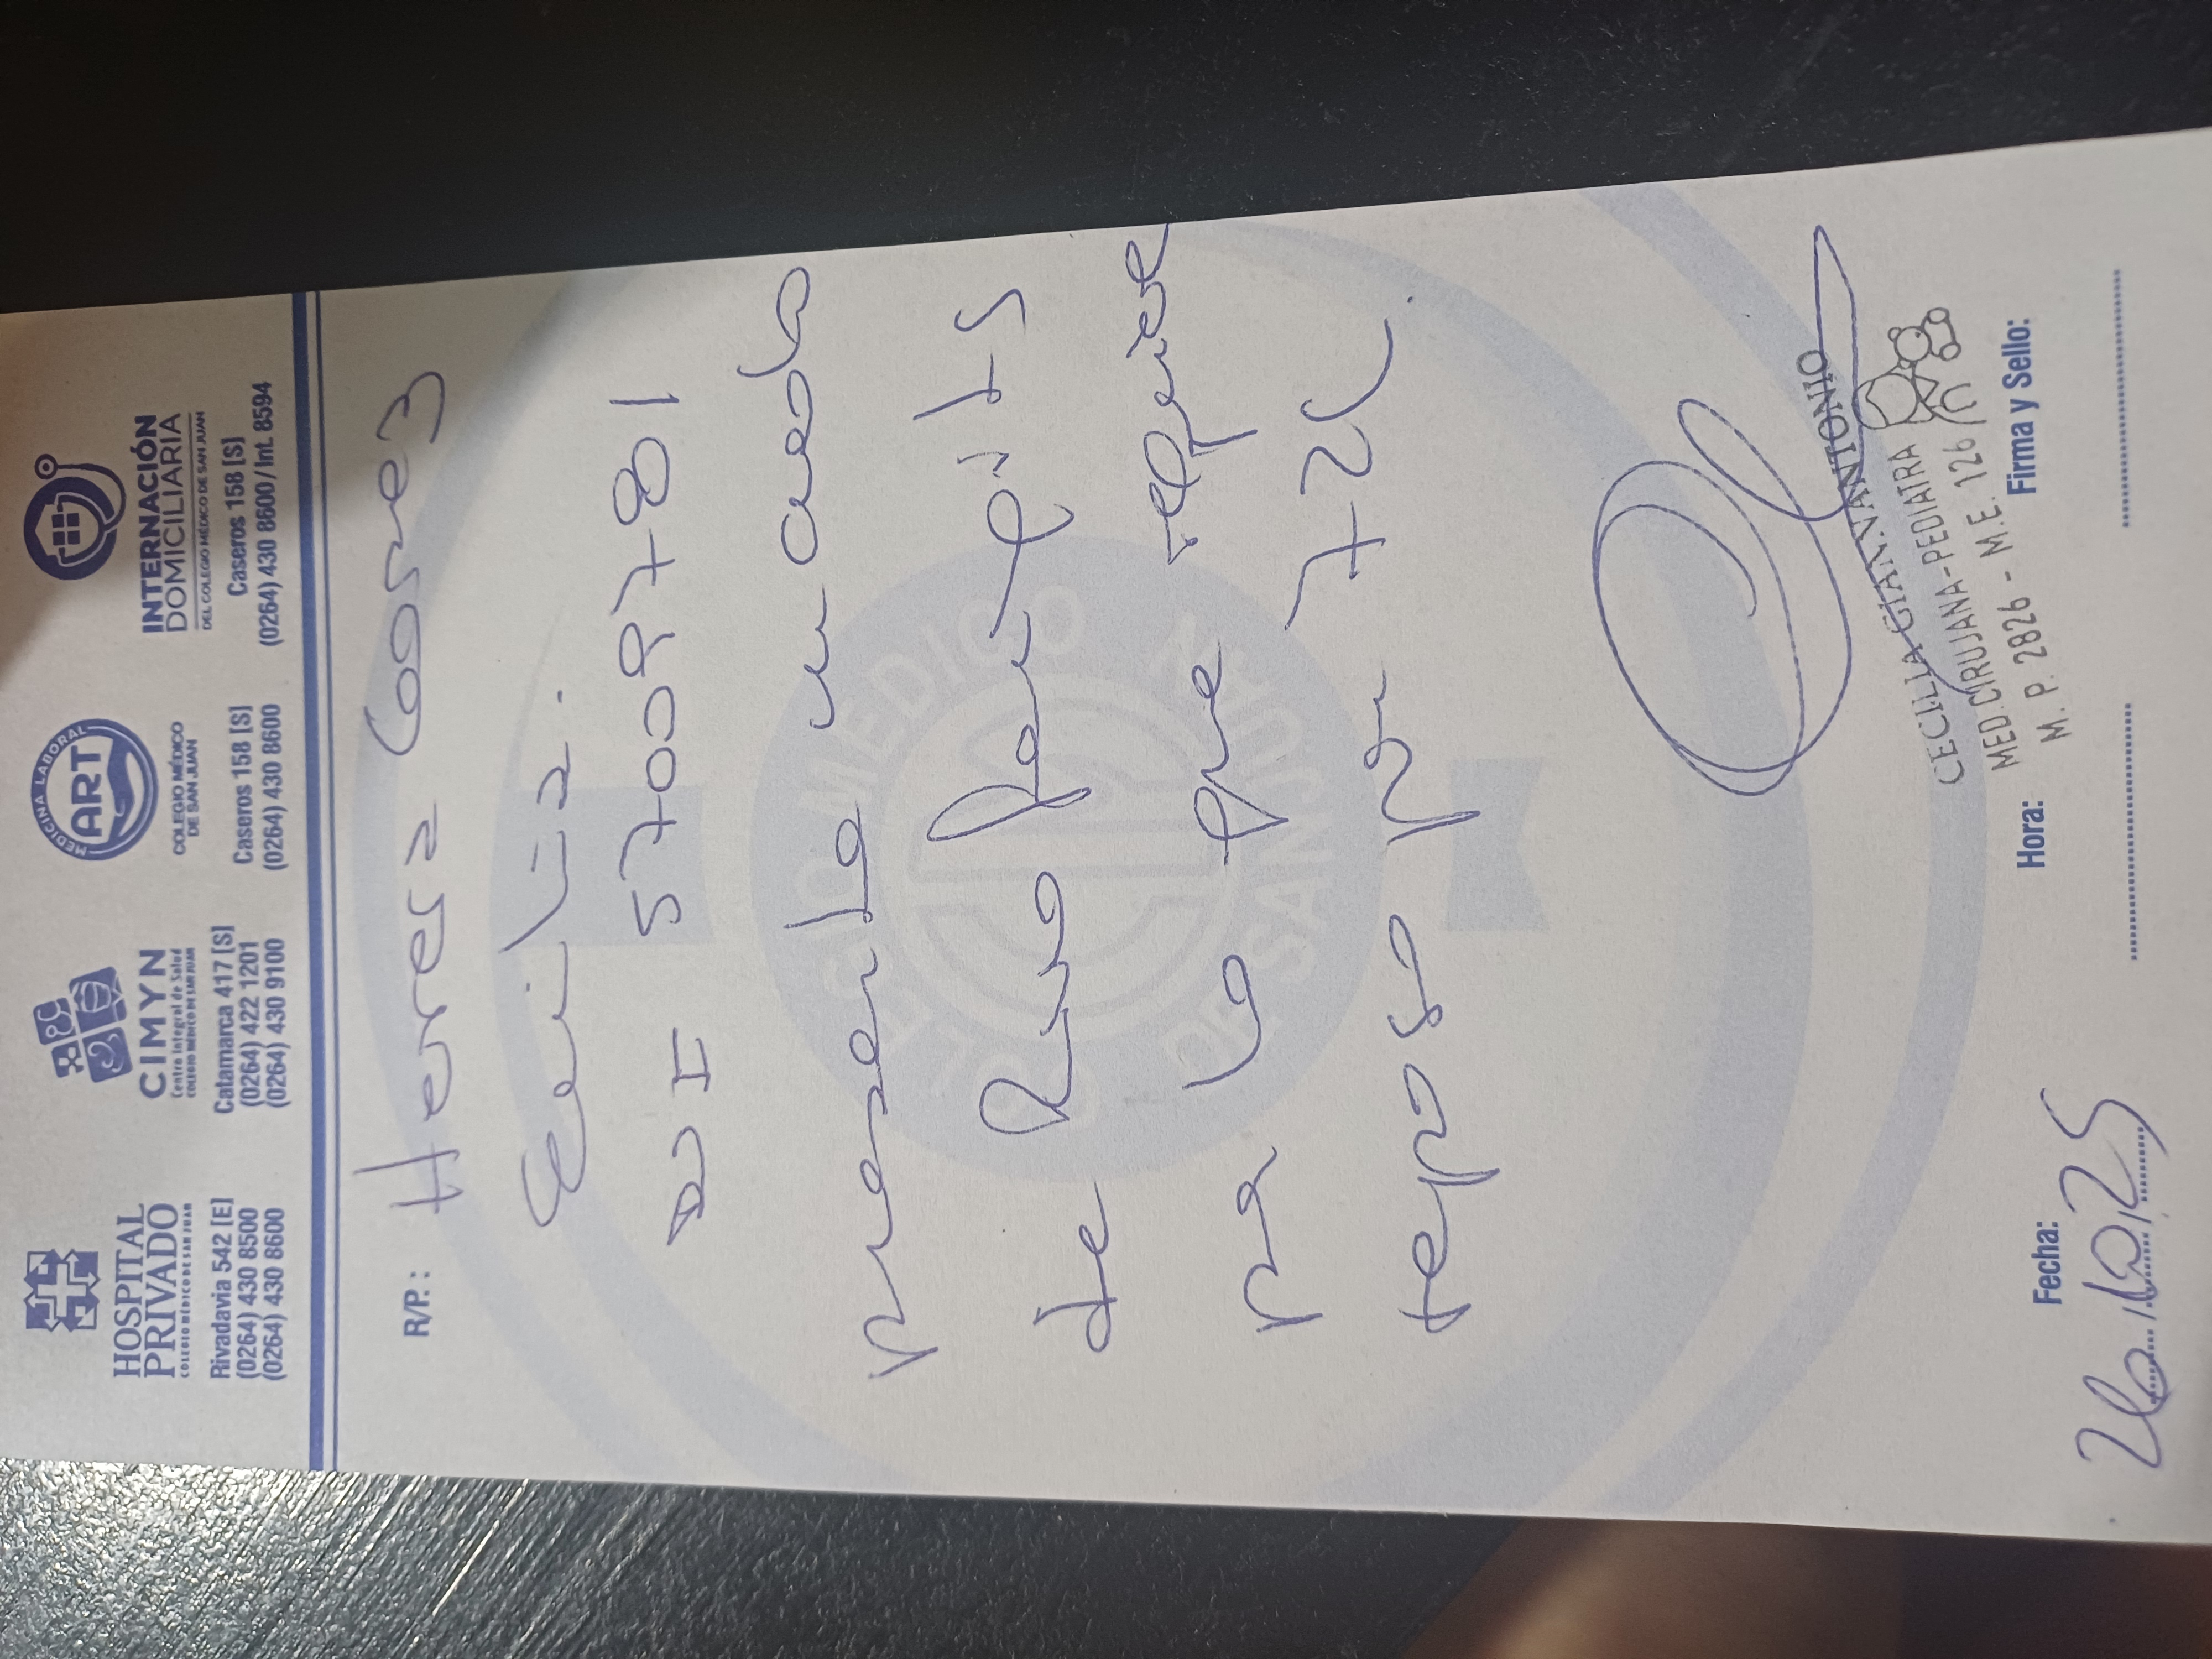 HOSPITAL
PRIVADO
COLEGIO MÉDICO DE SAN JUAN
Rivadavia 542 [E]
(0264) 430 8500
(0264) 430 8600
CIMYN
Centro Integral de Salud
COLEGIO MÉDICO DE SAN JUAN
Catamarca 417 [S]
(0264) 422 1201
(0264) 430 9100
MEDICINA LABORAL
ART
COLEGIO MÉDICO
DE SAN JUAN
Caseros 158 [S]
(0264) 430 8600
INTERNACIÓN
DOMICILIARIA
DEL COLEGIO MÉDICO DE SAN JUAN
Caseros 158 [S]
(0264) 430 8600/Int. 8594
R/P.:
DNI 570097801
presenta un cuadro
de
por lo que requiere
reposo por 72
CECILIA GIANNANTONIO
MED. CIRUJANA - PEDIATRA
M. P. 2826 - M.E. 126
Fecha:
Hora:
Firma y Sello:
26.10.25